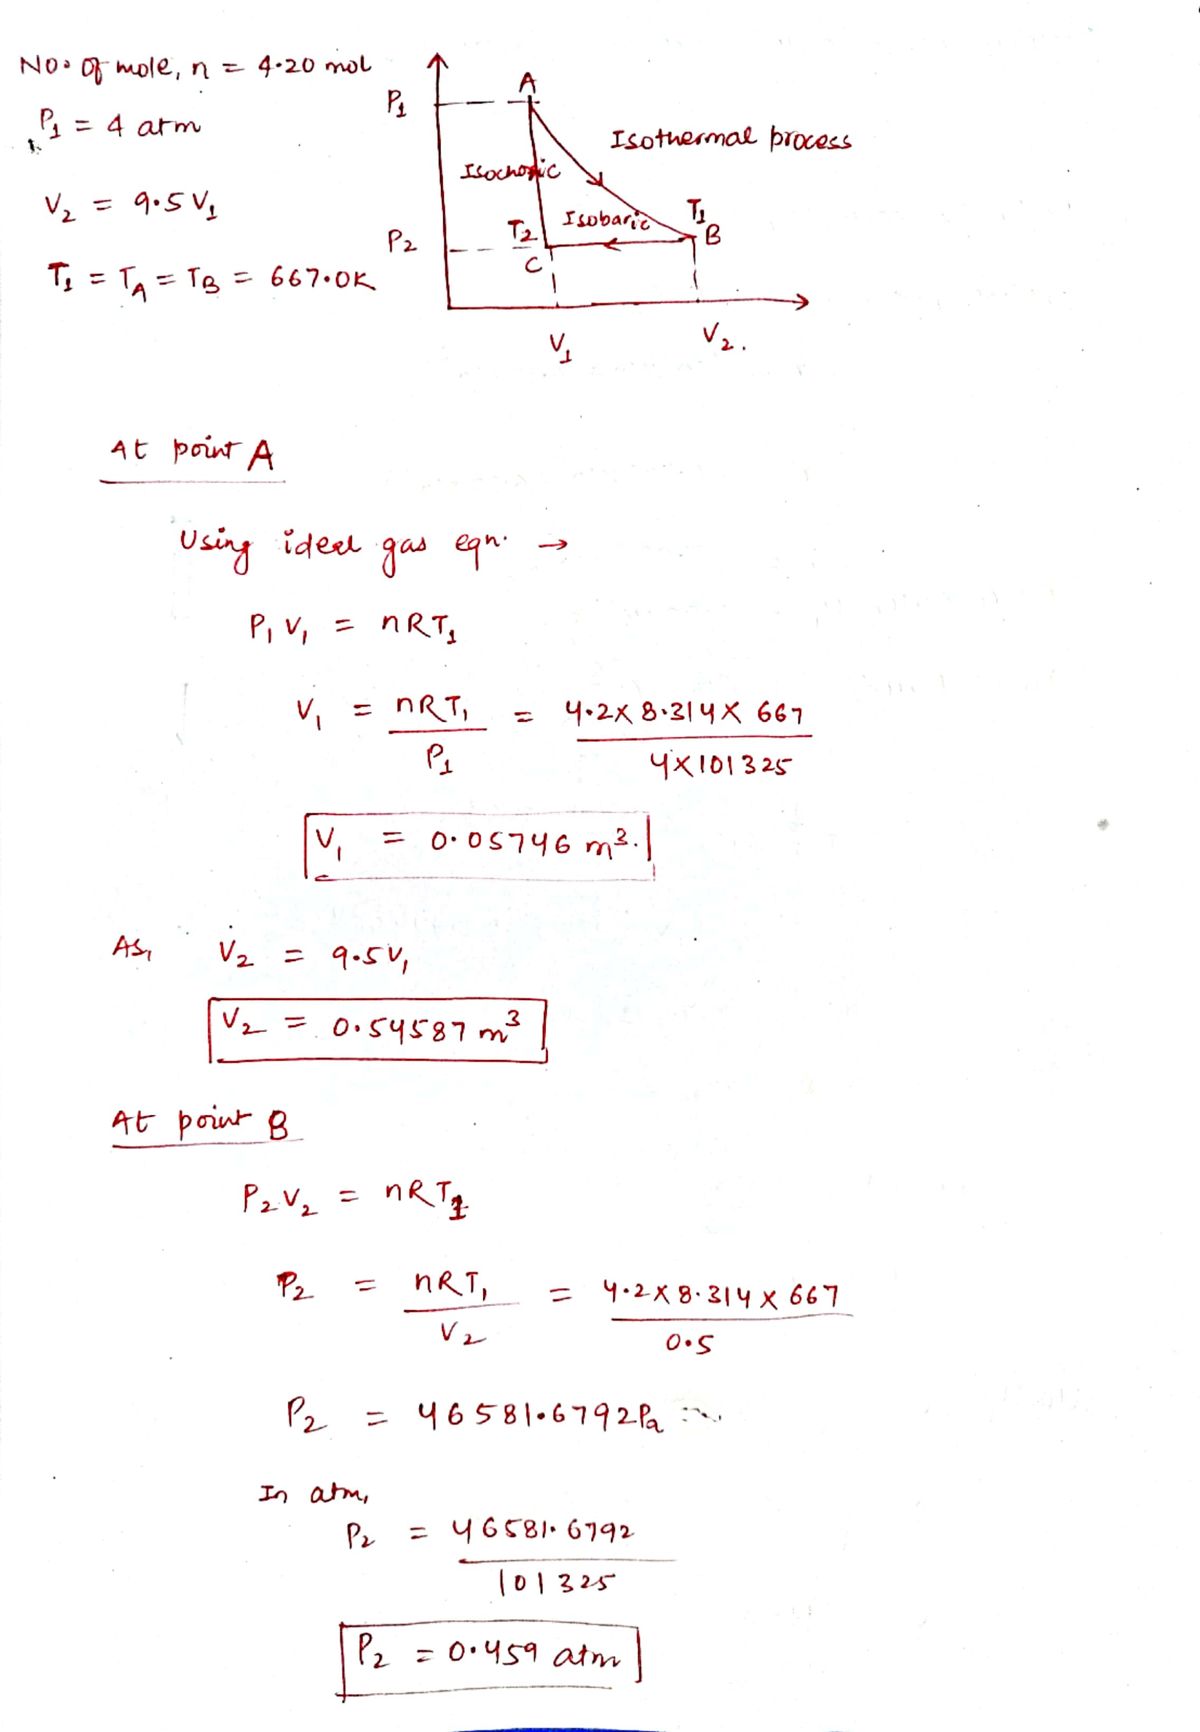 No. of mole, n = 4.20 mol
P1 = 4 atm
V2 = 9.5 V1
T1 = TA = TB = 667.0K
P1
A
Isothermal process
Isochoric
Isobaric
T1
P2
T2
B
C
V1
V2.
At point A
Using ideal gas eqn. →
P1 V1 = nRT1
V1 = nRT1 / P1 = 4.2 x 8.314 x 667 / 4x101325
V1 = 0.05746 m³.
As, V2 = 9.5V1
V2 = 0.54587 m³
At point B
P2 V2 = nRT1
P2 = nRT1 / V2 = 4.2 x 8.314 x 667 / 0.5
P2 = 46581.6792Pa
In atm,
P2 = 46581.6792 / 101325
P2 = 0.459 atm